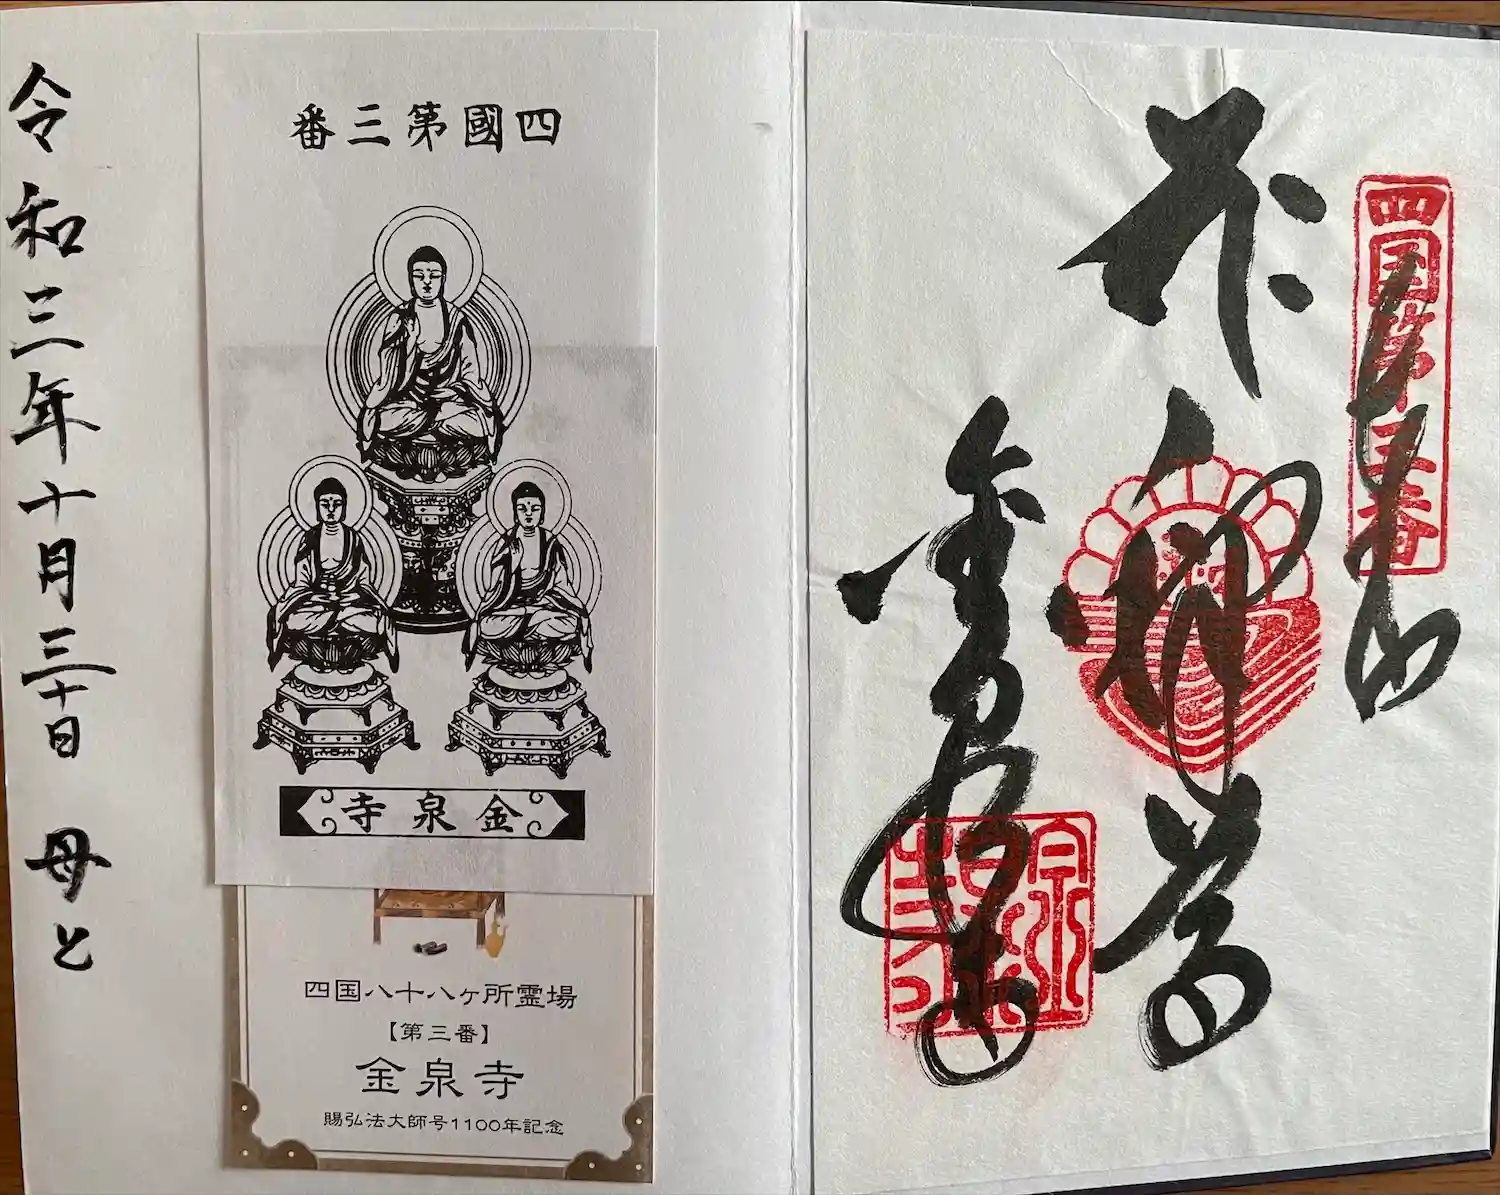 四国第三番
金泉寺
四國第三番
金泉寺
四国八十八ヶ所霊場
【第三番】
金泉寺
賜弘法大師号1100年記念
令和三年十月三十日 母と